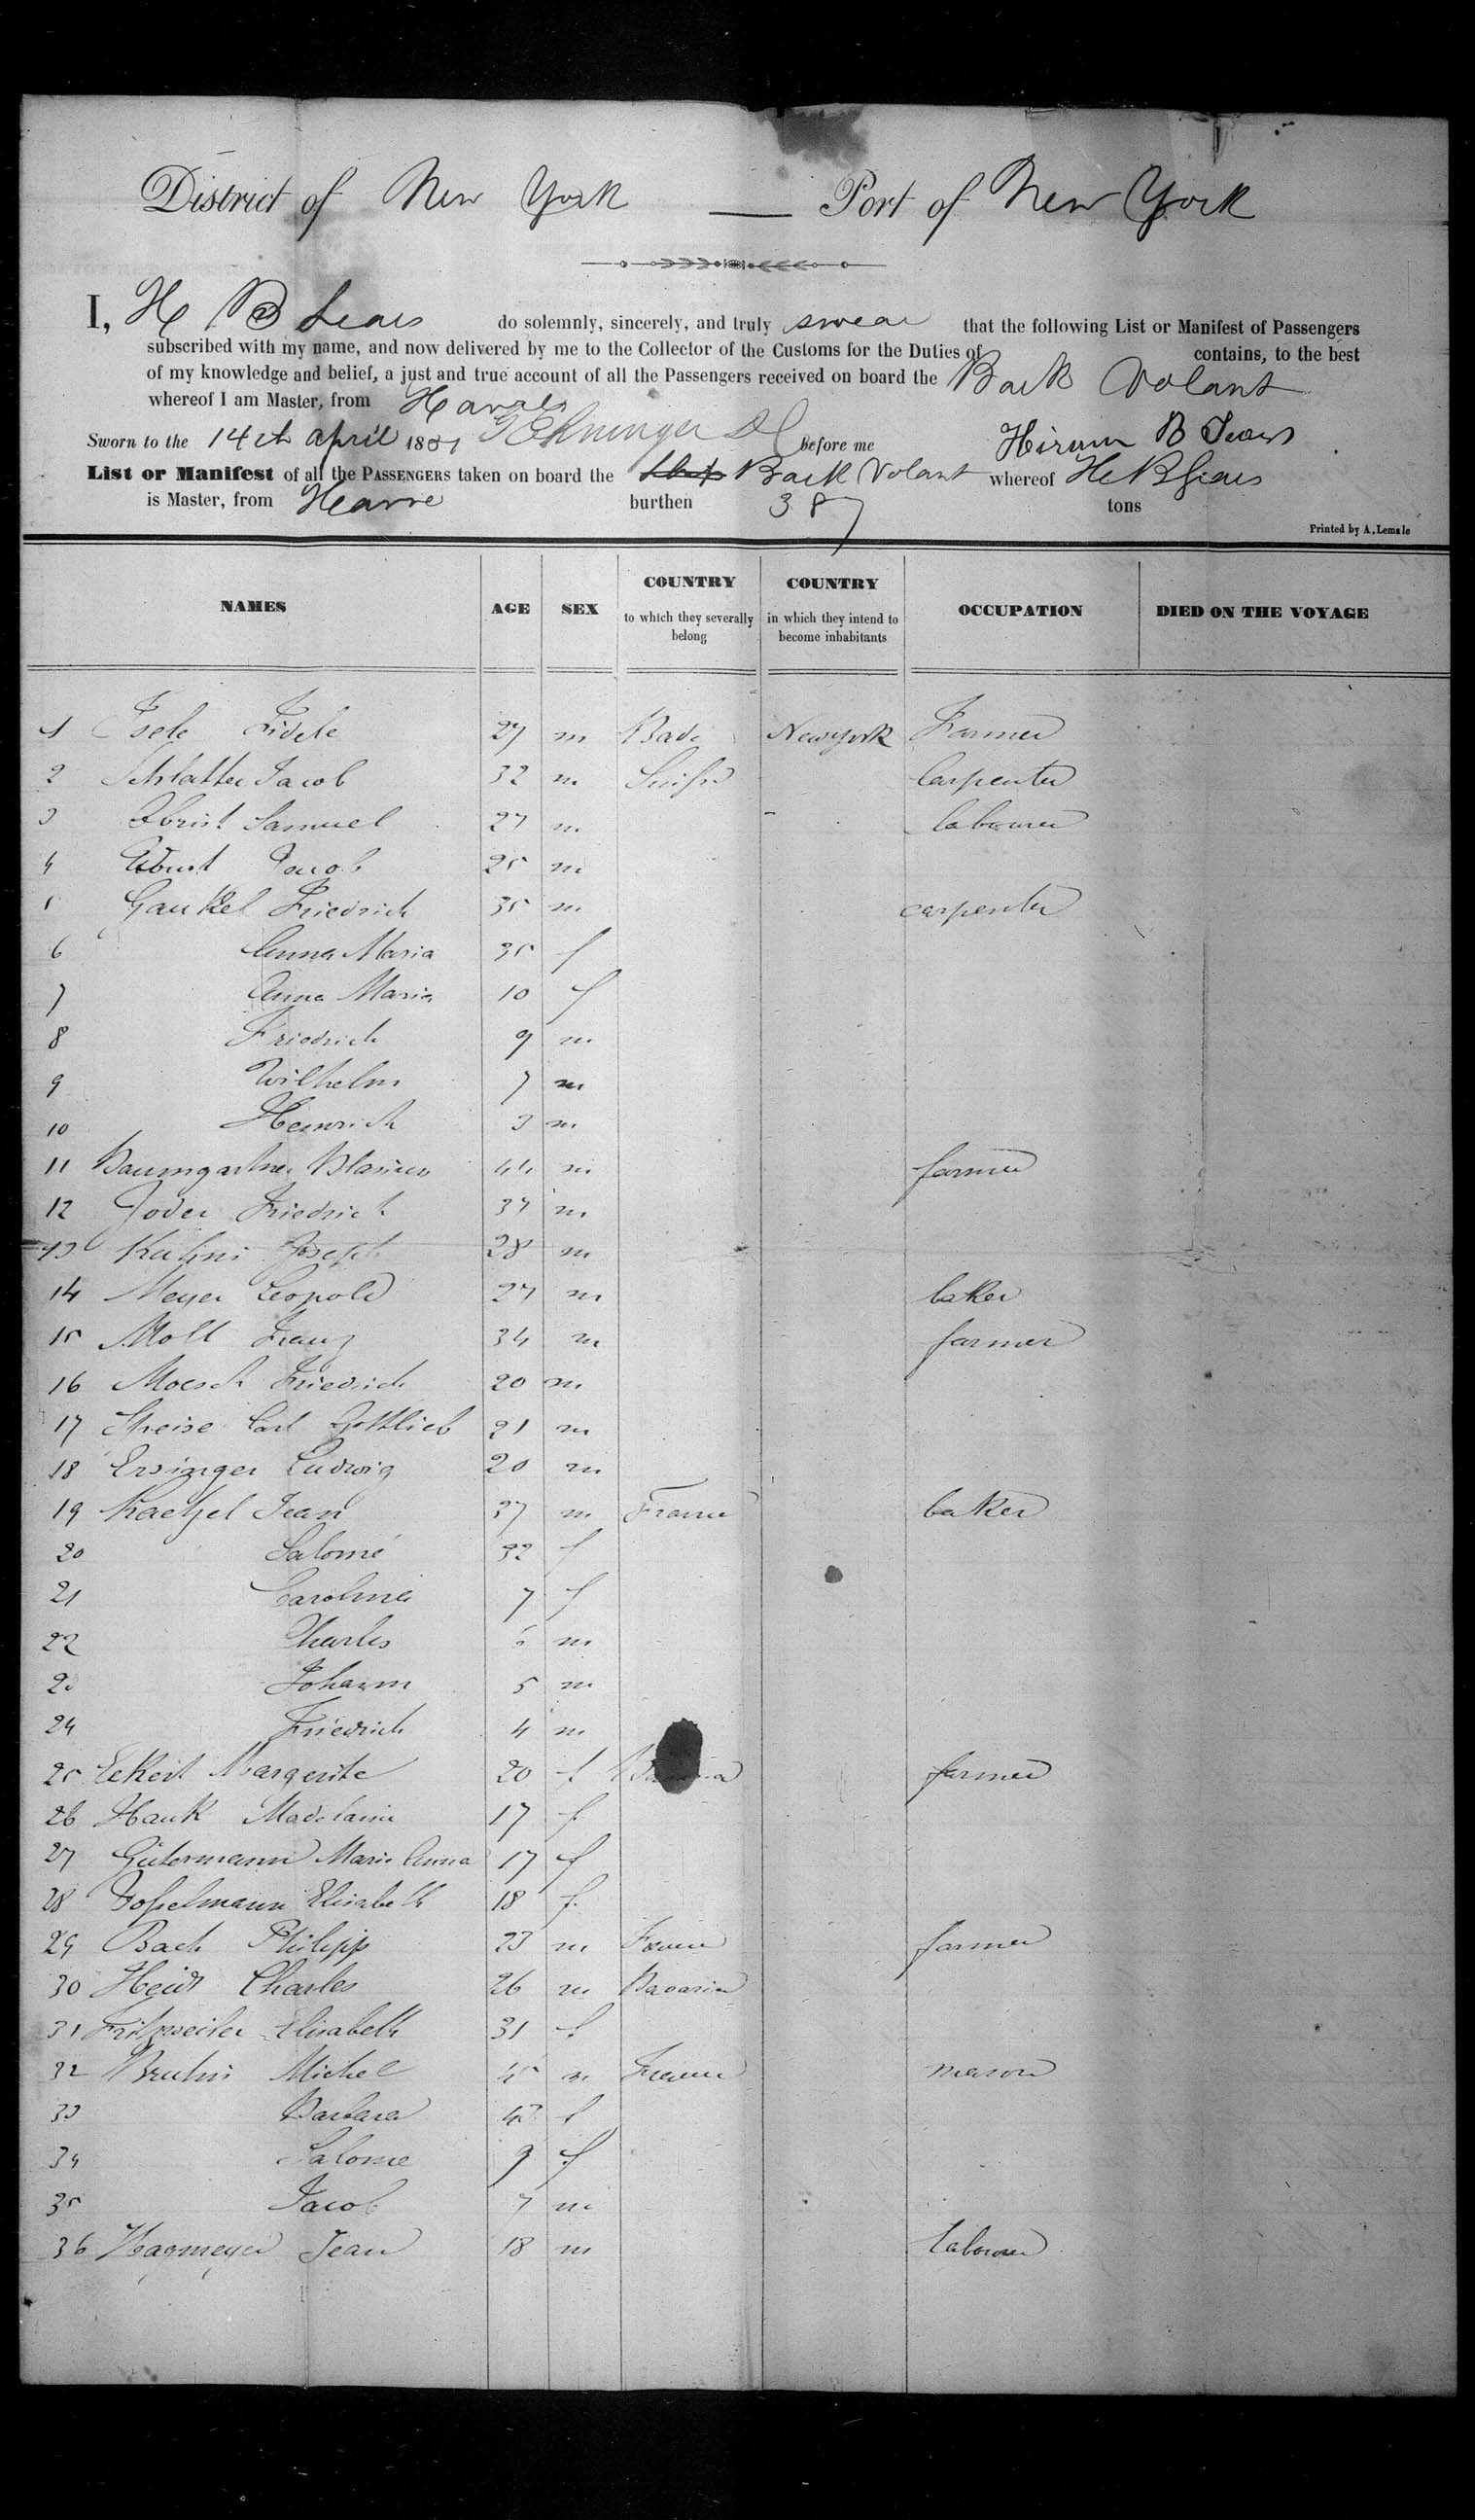 District of New York — Port of New York
I, H B Sears do solemnly, sincerely, and truly swear that the following List or Manifest of Passengers
subscribed with my name, and now delivered by me to the Collector of the Customs for the Duties of contains, to the best
of my knowledge and belief, a just and true account of all the Passengers received on board the Bark Volant
whereof I am Master, from Havre
Sworn to the 14th april 18 before me Hiram B Sears
List or Manifest of all the PASSENGERS taken on board the Ship Bark Volant whereof H B Sears
is Master, from Havre burthen 387 tons
Printed by A, Lemale
NAMES AGE SEX COUNTRY to which they severally belong COUNTRY in which they intend to become inhabitants OCCUPATION DIED ON THE VOYAGE
1 Isele Fidele 27 m Bade Newyork Farmer
2 Schlatter Jacob 32 m Suisse Carpenter
3 Obrist Samuel 27 m labourer
4 Jacob 25 m
5 Gaukel Friedrich 35 m carpenter
6 Anna Maria 35 f
7 Anna Maria 10 f
8 Friedrich 9 m
9 Wilhelm 7 m
10 Heinrich 3 m
11 Baumgartner Blasius 44 m farmer
12 Joder Friedrich 37 m
13 Kuhni Joseph 28 m
14 Meyer Leopold 27 m baker
15 Moll Franz 34 m farmer
16 Moesch Friedrich 20 m
17 Carl Gottlieb 21 m
18 Ersinger Ludwig 20 m
19 Kaetzel Jean 37 m France baker
20 Salomé 32 f
21 Caroline 7 f
22 Charles 6 m
23 Johann 5 m
24 Friedrich 4 m
25 Eckert Margerite 20 f Bavaria farmer
26 Hauk Madelaine 17 f
27 Gütermann Marie Anna 17 f
28 Elisabeth 18 f.
29 Bach Philipp 23 m France farmer
30 Heidt Charles 26 m Bavaria
31 Fritzweiler Elisabeth 31 f.
32 Bruhn Michel 45 m France mason
33 Barbara 43 f
34 Salome 9 f
35 Jacob 7 m
36 Hagmeyer Jean 18 m labourer